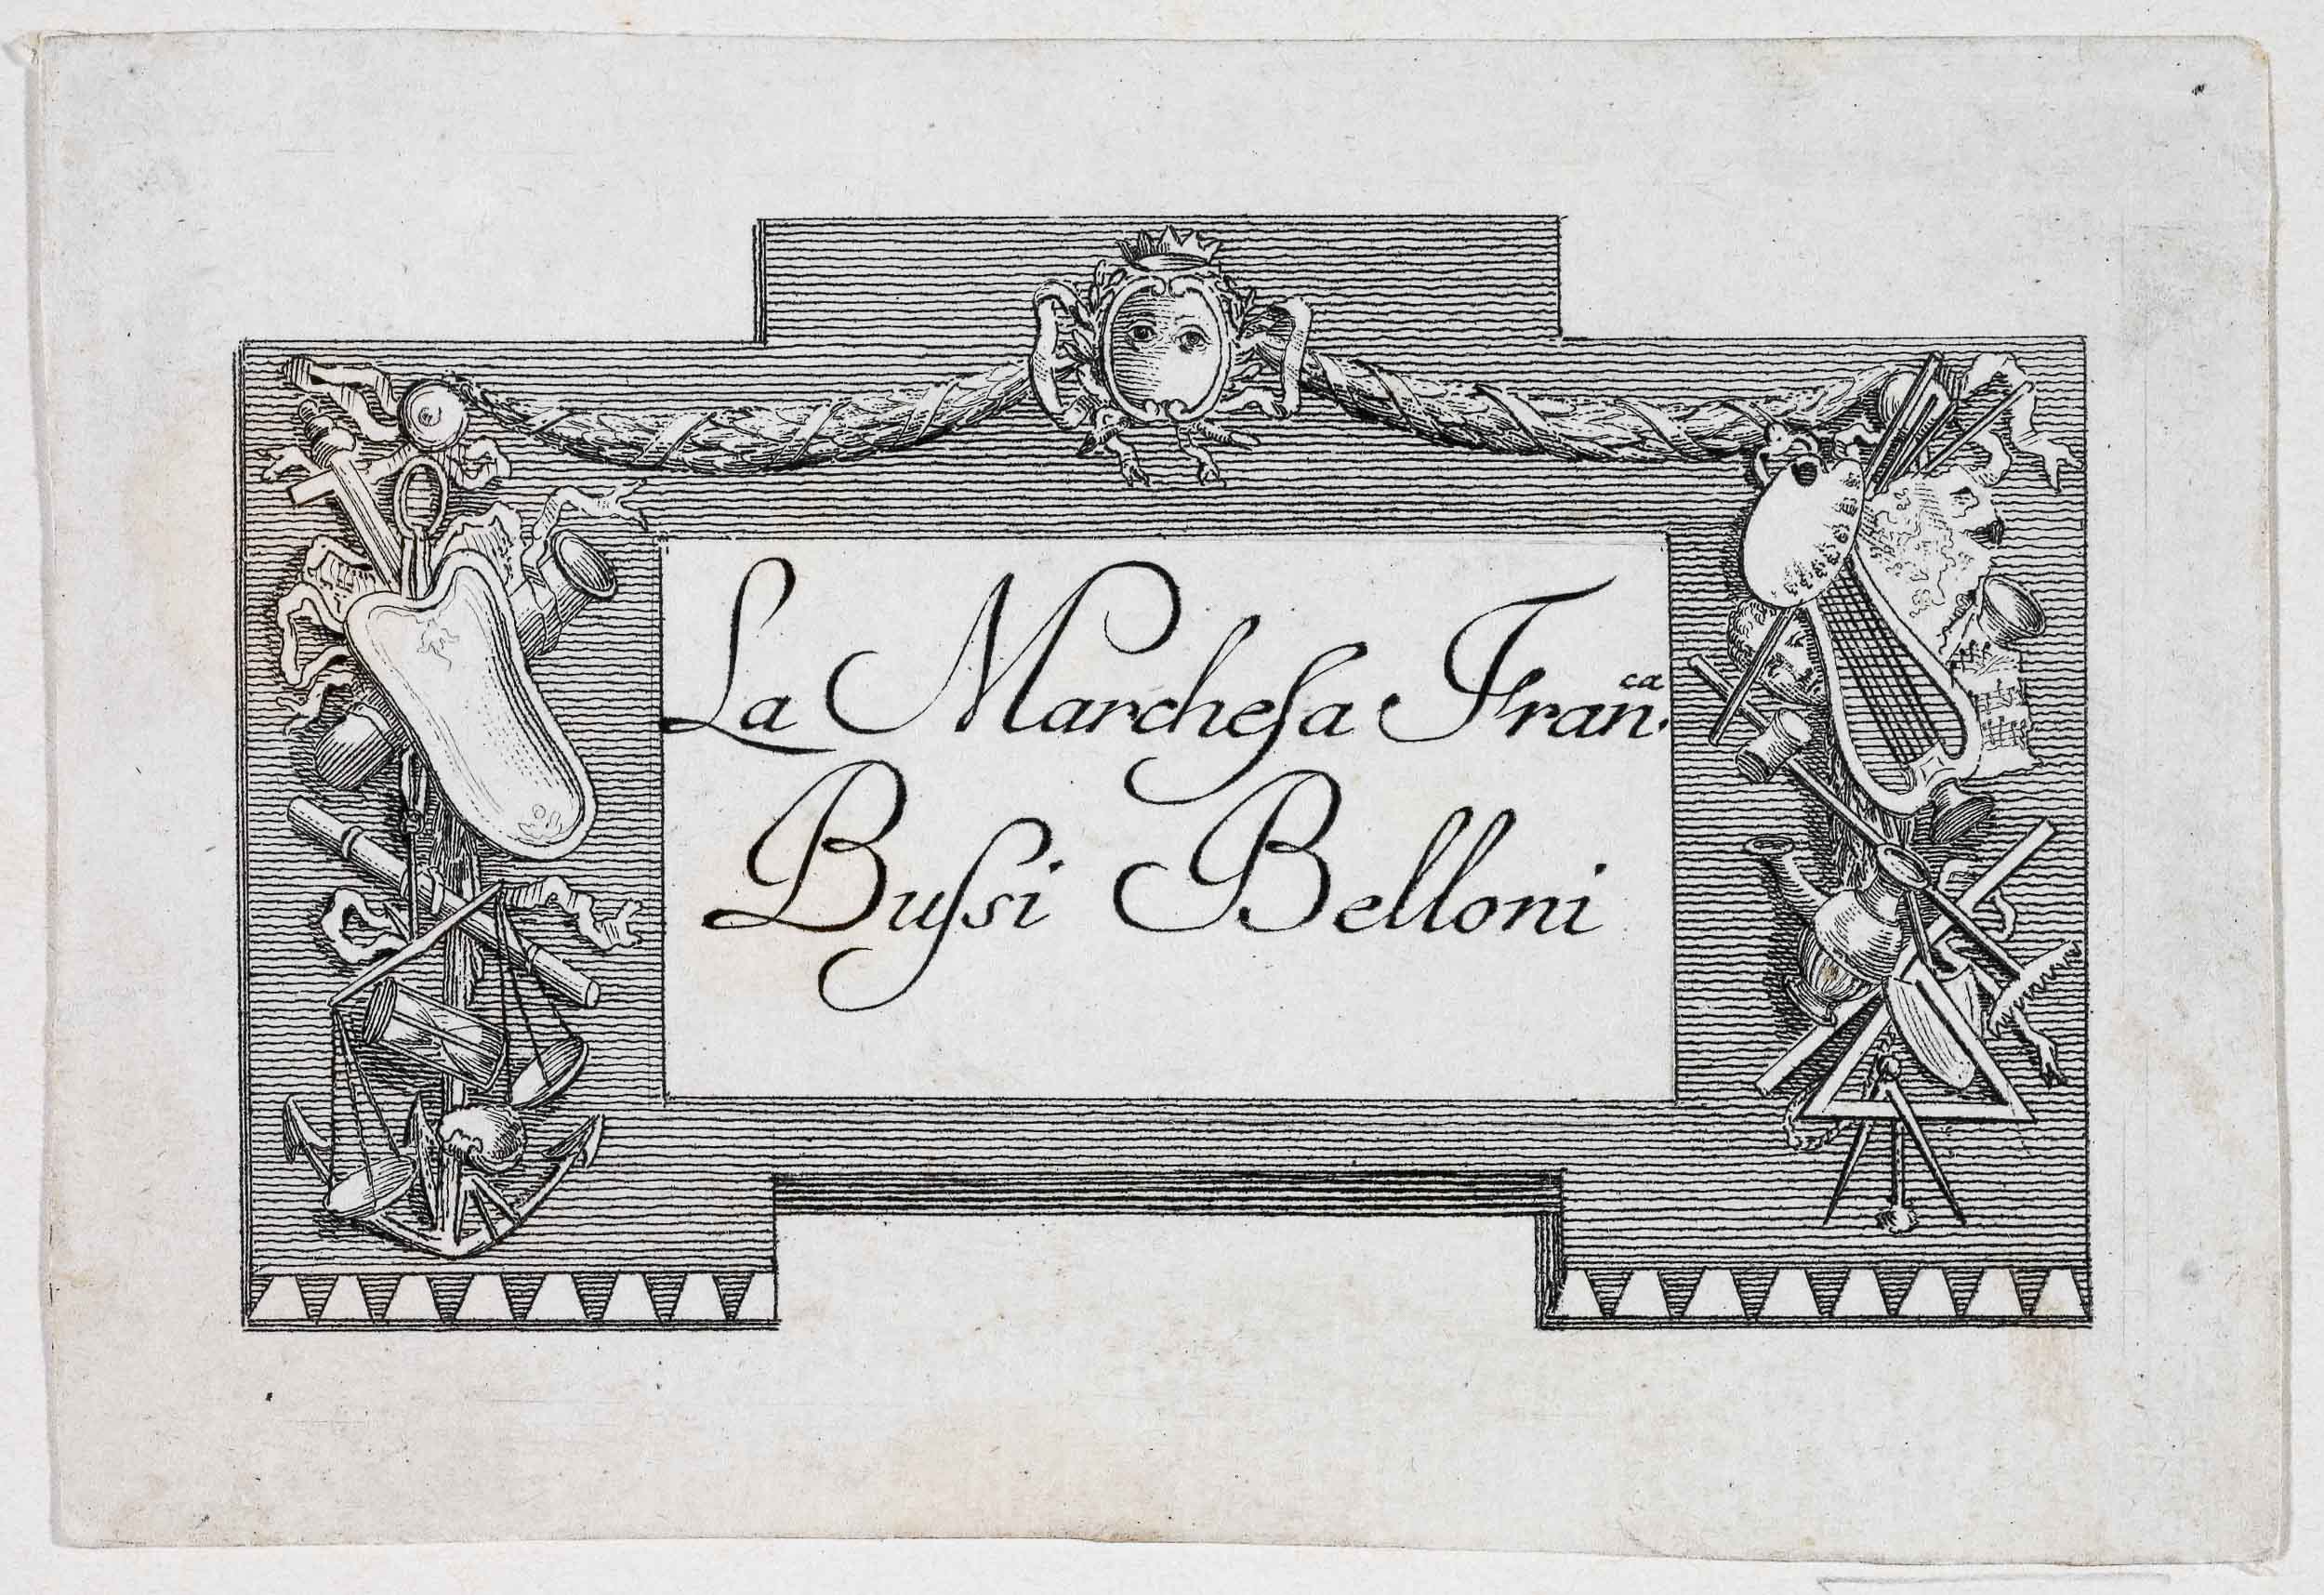 La Marcheſa Frañ.ᶜᵃ
Buſsi Belloni